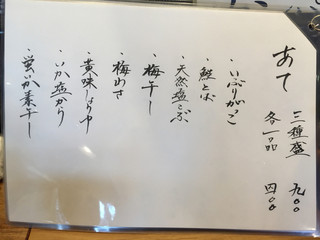 あて
三種盛 九〇〇
各一品 四〇〇
・いぶりがっこ
・鮭とば
・天然塩こぶ
・梅干し
・梅わさ
・黄味しょうゆ
・いか塩から
・蛍いか素干し